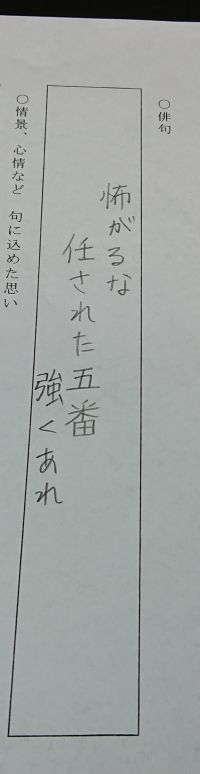 ○俳句
怖がるな
任された五番
強くあれ
○情景、心情など　句に込めた思い